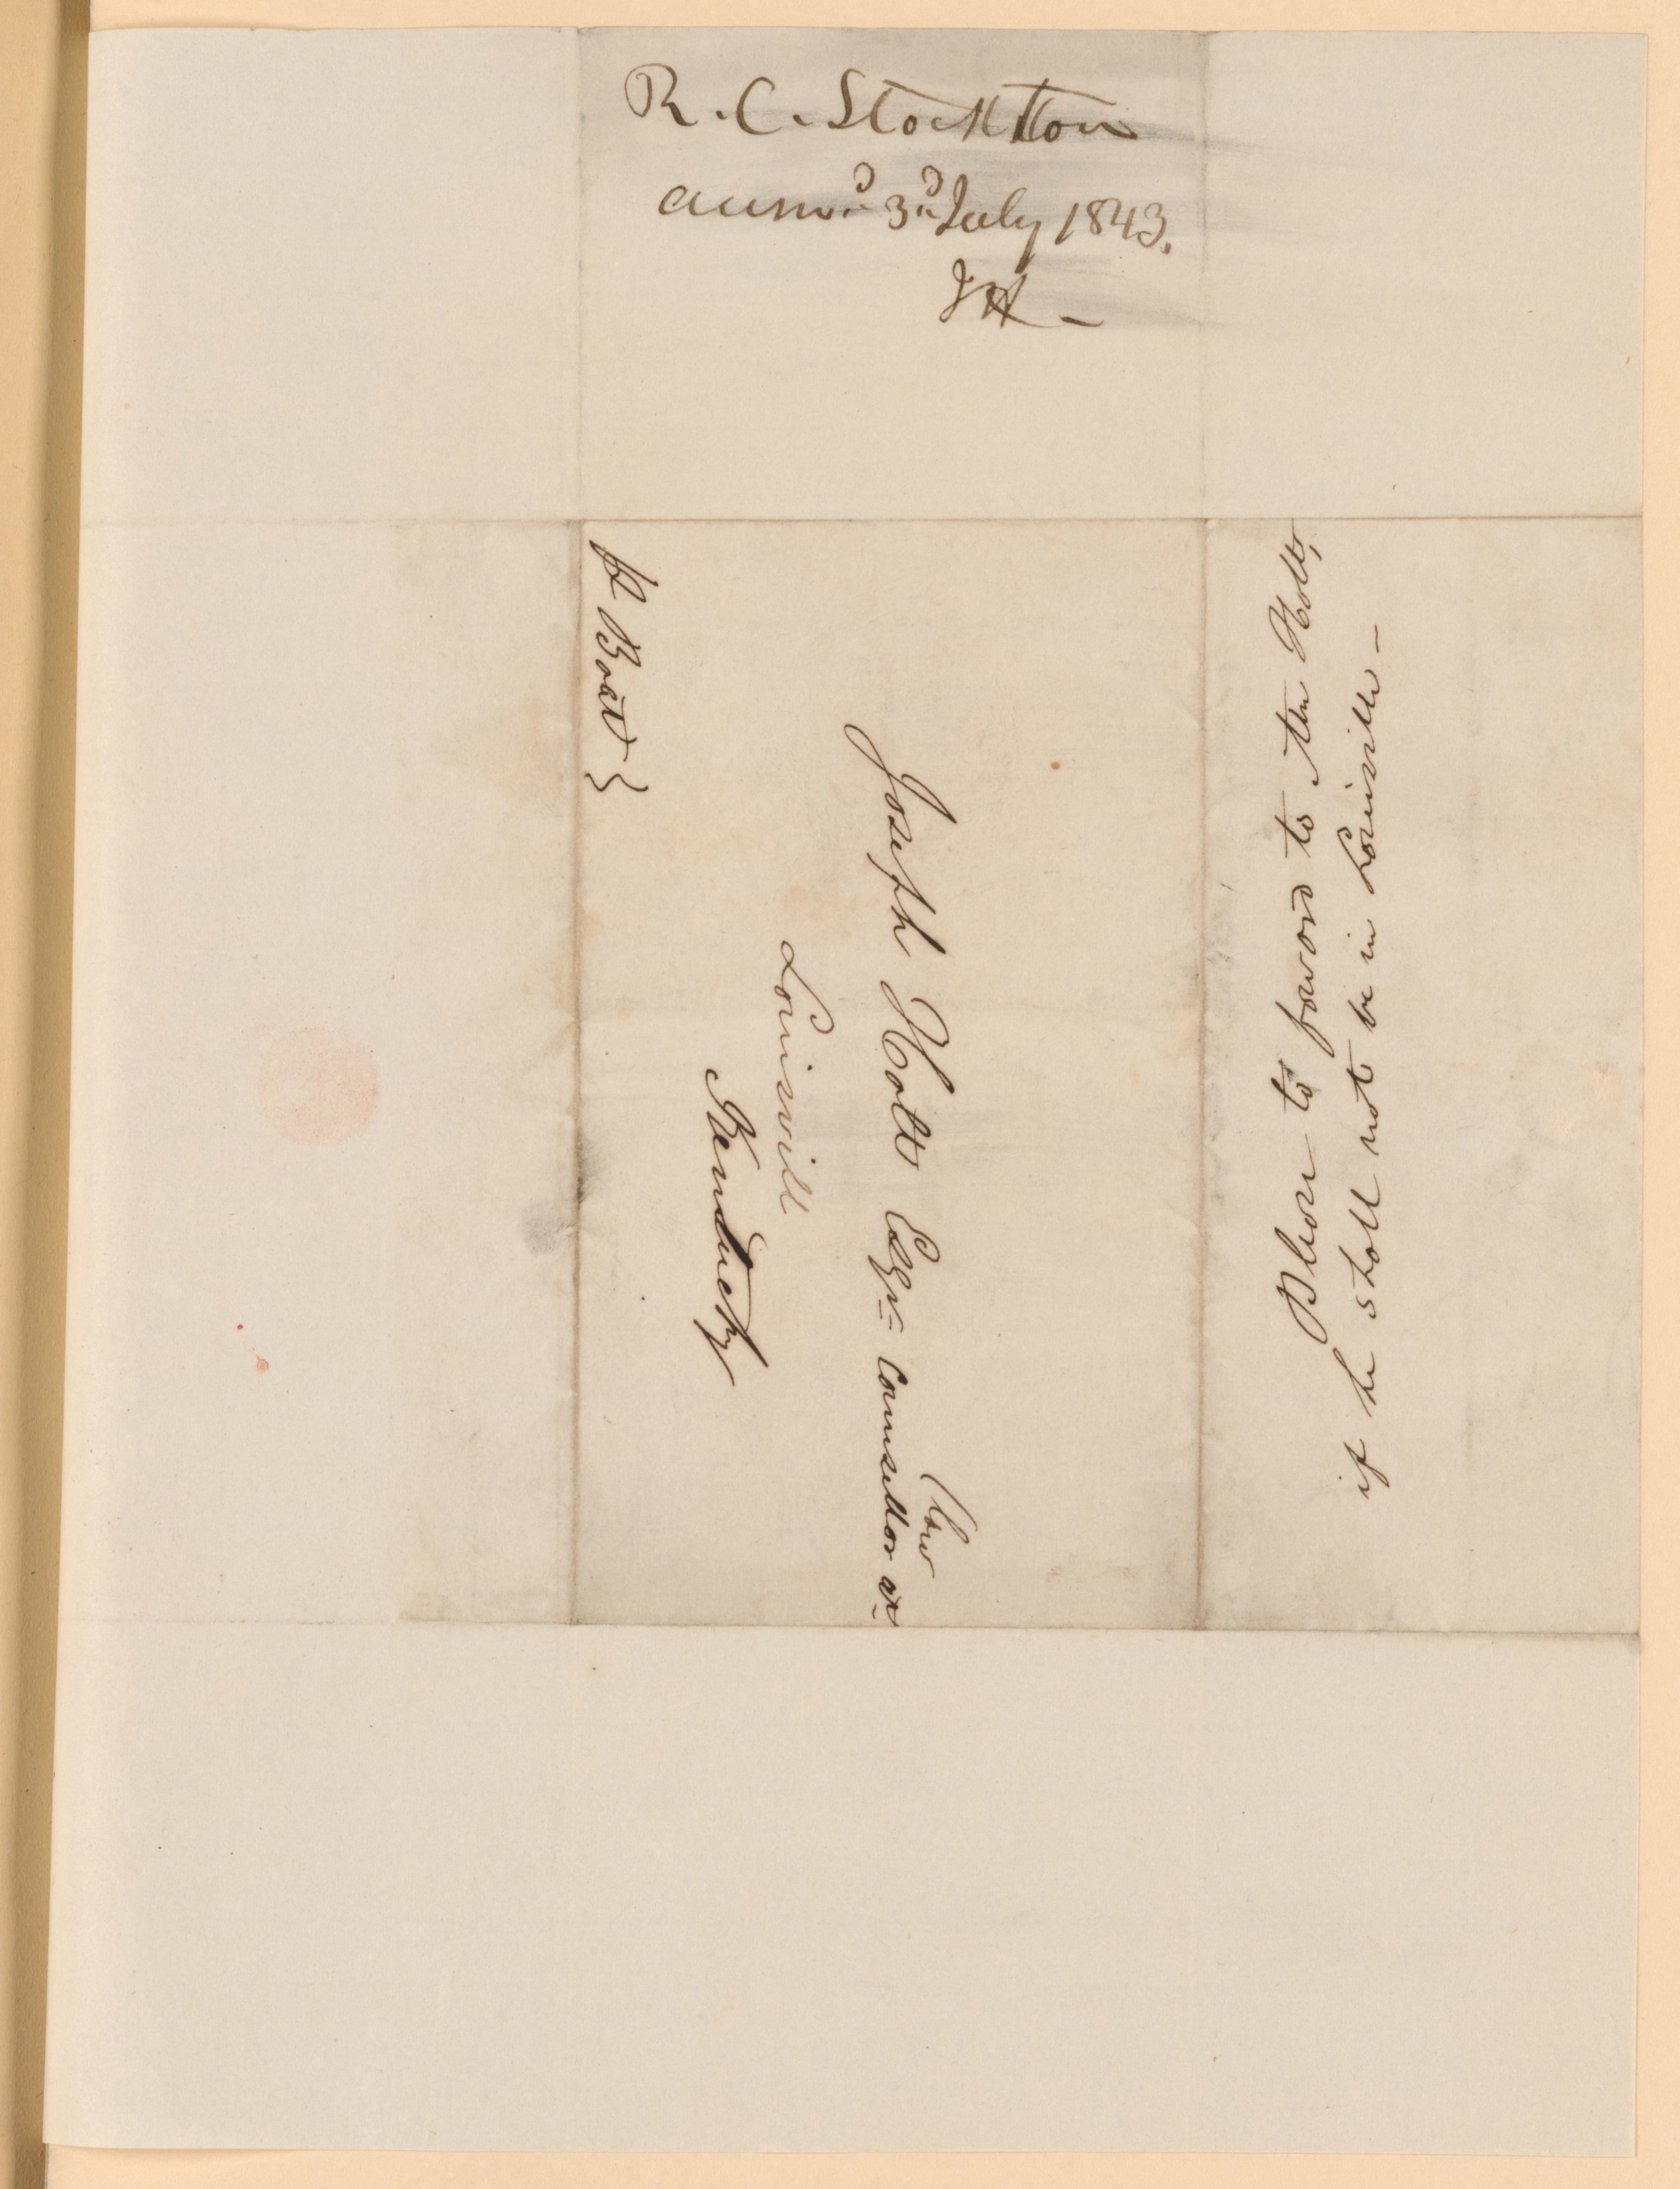 R. C. Stockton
answd 3d July 1843.
JH -
pr Boat }
Joseph Holt Esqr Counsellor at
Law
Louisvill
Kentucky
Please to forword to Mr Holt,
if he shall not be in Louisville -